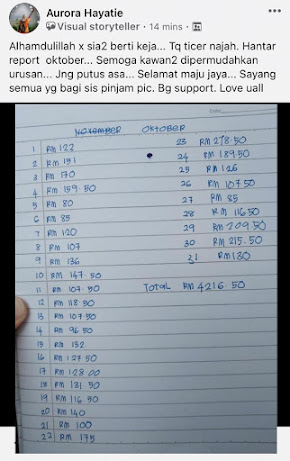 Aurora Hayatie
Visual storyteller · 14 mins ·
Alhamdulillah x sia2 berti keja... Tq ticer najah. Hantar
report oktober... Semoga kawan2 dipermudahkan
urusan... Jng putus asa... Selamat maju jaya... Sayang
semua yg bagi sis pinjam pic. Bg support. Love uall
November OKTOBER
1 RM 122
2 RM 151
3 RM 170
4 RM 159.50
5 RM 80
6 RM 85
7 RM 120
8 RM 107
9 RM 136
10 RM 147.50
11 RM 107.50
12 RM 118.50
13 RM 107.50
14 RM 96.50
15 RM 132
16 RM 127.50
17 RM 128.00
18 RM 131.50
19 RM 116.50
20 RM 140
21 RM 100
22 RM 175
23 RM 278.50
24 RM 189.50
25 RM 126
26 RM 107.50
27 RM 85
28 RM 116.50
29 RM 209.50
30 RM 215.50
31 RM 130
TOTAL RM 4216.50